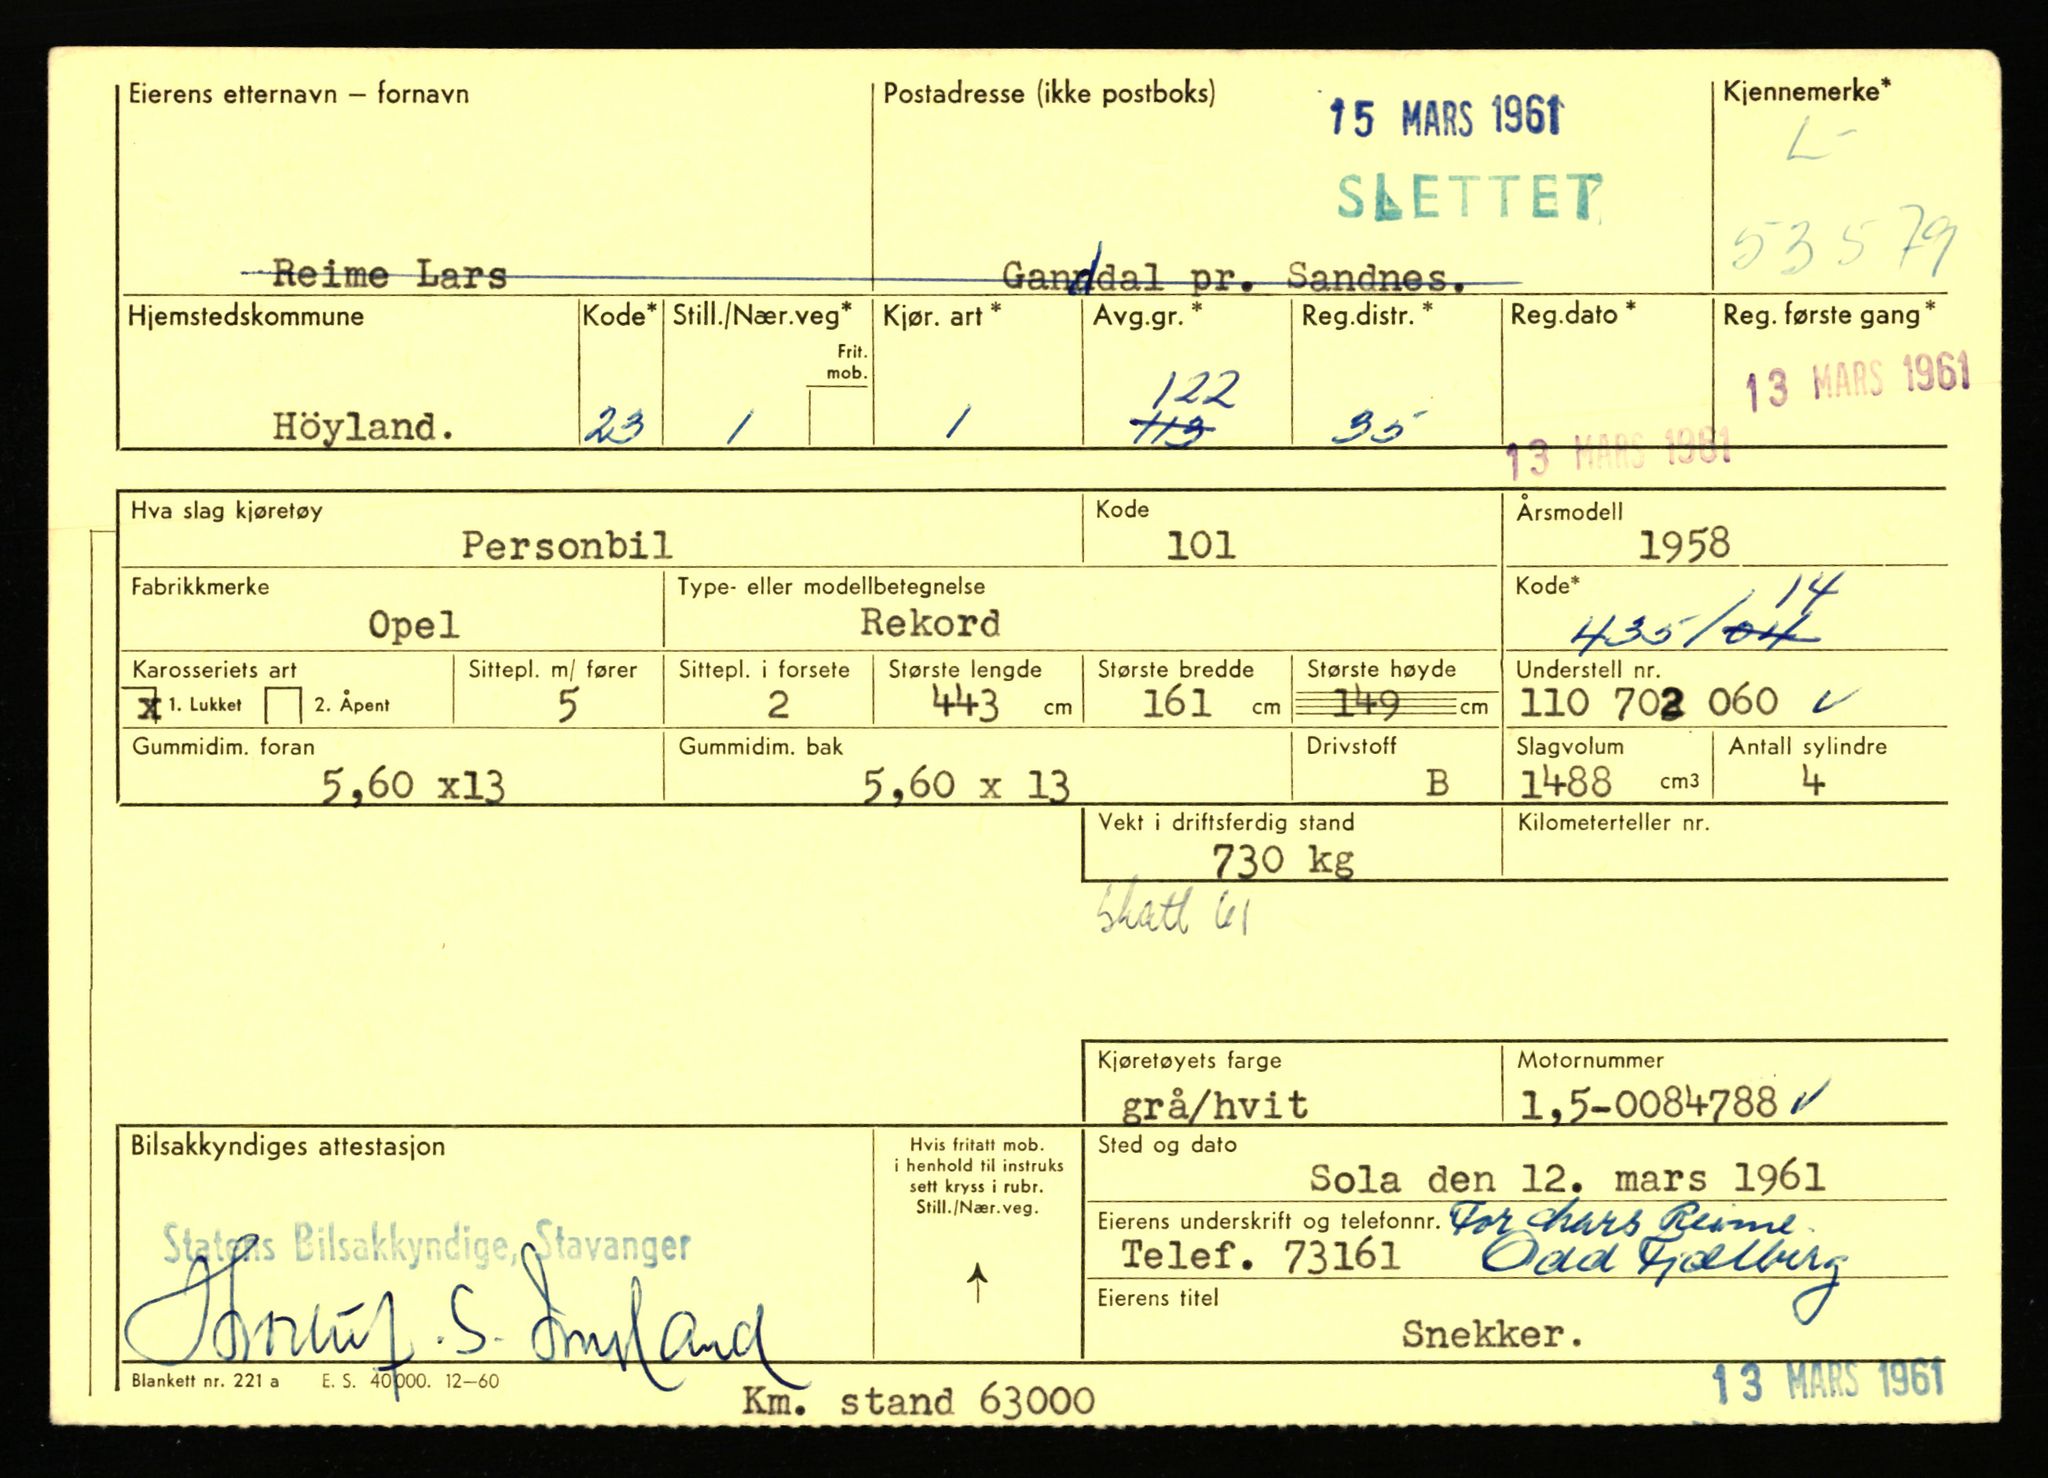 Eierens etternavn – fornavn
Postadresse (ikke postboks)
15 MARS 1961
Kjennemerke*
L-
SLETTET
53579
Reime Lars
Ganddal pr. Sandnes.
Hjemstedskommune Kode* Still./Nær.veg* Kjør. art* Avg.gr.* Reg.distr.* Reg.dato* Reg. første gang*
Frit. mob.
122
13 MARS 1961
Höyland. 23 1 1 113 35
13 MARS 1961
Hva slag kjøretøy Kode Årsmodell
Personbil 101 1958
Fabrikkmerke Type- eller modellbetegnelse Kode*
14
Opel Rekord 435/04
Karosseriets art Sittepl. m/ fører Sittepl. i forsete Største lengde Største bredde Største høyde Understell nr.
x 1. Lukket 2. Åpent 5 2 443 cm 161 cm 149 cm 110 702 060
Gummidim. foran Gummidim. bak Drivstoff Slagvolum Antall sylindre
5,60 x13 5,60 x 13 B 1488 cm3 4
Vekt i driftsferdig stand Kilometerteller nr.
730 kg
Skatt 61
Kjøretøyets farge Motornummer
grå/hvit 1,5-0084788
Bilsakkyndiges attestasjon
Hvis fritatt mob.
i henhold til instruks
sett kryss i rubr.
Still./Nær.veg.
Sted og dato
Sola den 12. mars 1961
Statens Bilsakkyndige, Stavanger
Eierens underskrift og telefonnr. For Lars Reime.
Telef. 73161 Odd Fjælberg
Eierens titel
Snekker.
Blankett nr. 221 a E. S. 40 000. 12–60
13 MARS 1961
Km. stand 63000